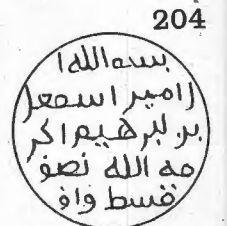 204
بسم الله ا
لامير اسمعيل
بن ابرهيم اكر
مه الله نصف
قسط واف